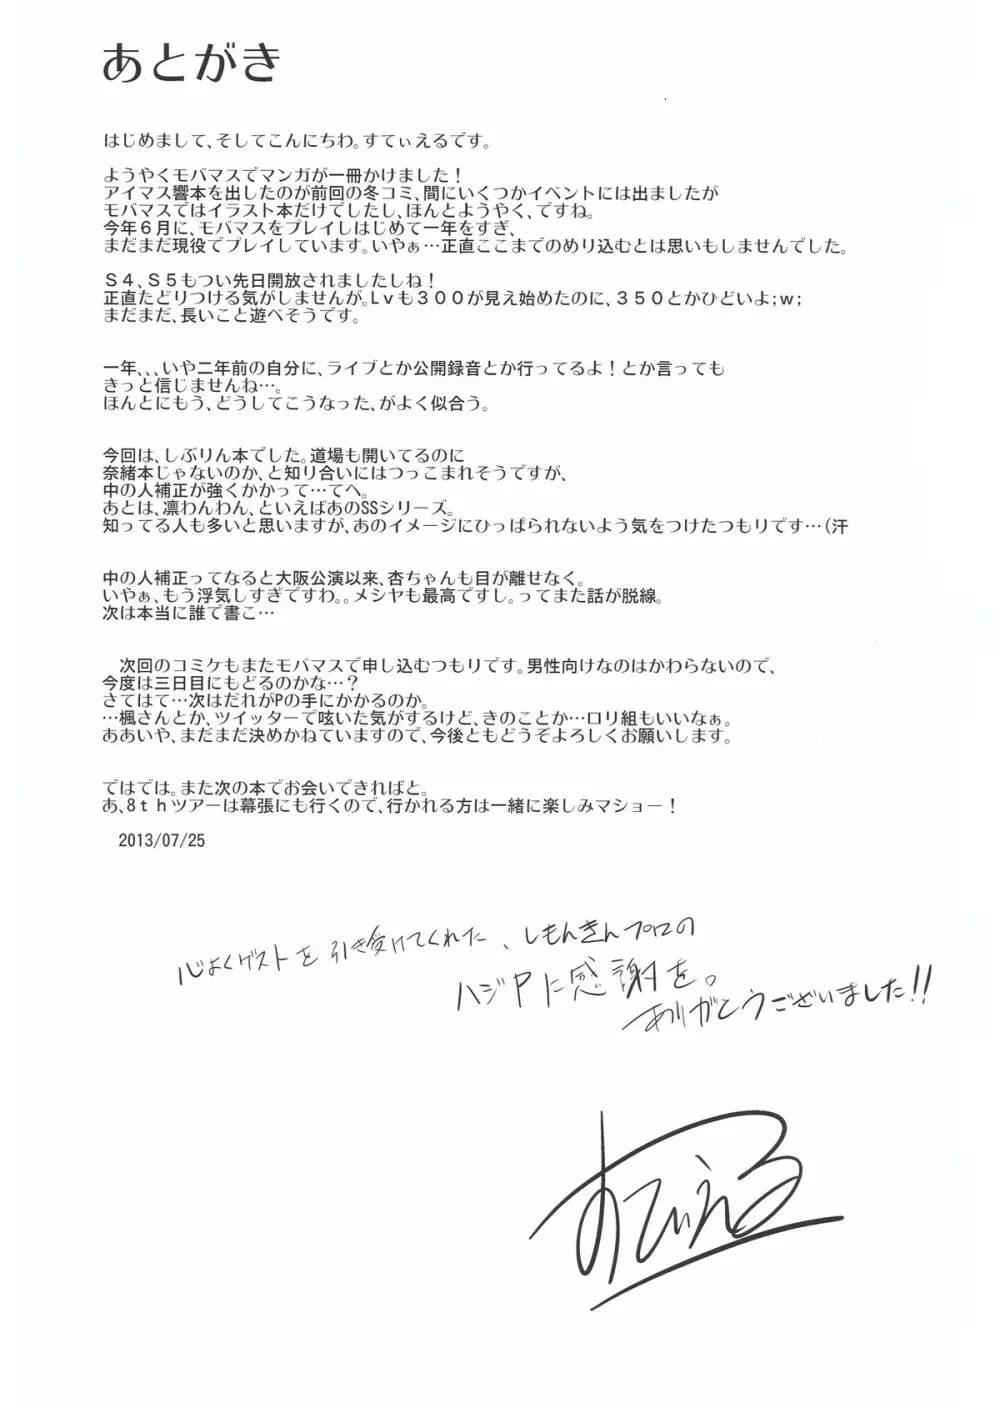 あとがき
はじめまして、そしてこんにちわ。すてぃえるです。
ようやくモバマスでマンガが一冊かけました！
アイマス響本を出したのが前回の冬コミ、間にいくつかイベントには出ましたが
モバマスではイラスト本だけでしたし、ほんとようやく、ですね。
今年６月に、モバマスをプレイしはじめて一年をすぎ、
まだまだ現役でプレイしています。いやぁ…正直ここまでのめり込むとは思いもしませんでした。
Ｓ４、Ｓ５もつい先日開放されましたしね！
正直たどりつける気がしませんが。Ｌｖも３００が見え始めたのに、３５０とかひどいよ;w;
まだまだ、長いこと遊べそうです。
一年、、、いや二年前の自分に、ライブとか公開録音とか行ってるよ！とか言っても
きっと信じませんね…。
ほんとにもう、どうしてこうなった、がよく似合う。
今回は、しぶりん本でした。道場も開いてるのに
奈緒本じゃないのか、と知り合いにはつっこまれそうですが、
中の人補正が強くかかって…てへ。
あとは、凛わんわん、といえばあのSSシリーズ。
知ってる人も多いと思いますが、あのイメージにひっぱられないよう気をつけたつもりです…（汗
中の人補正ってなると大阪公演以来、杏ちゃんも目が離せなく。
いやぁ、もう浮気しすぎですわ。。メシヤも最高ですし。ってまた話が脱線。
次は本当に誰で書こ…
　次回のコミケもまたモバマスで申し込むつもりです。男性向けなのはかわらないので、
今度は三日目にもどるのかな…？
さてはて…次はだれがPの手にかかるのか。
…楓さんとか、ツイッターで呟いた気がするけど、きのことか…ロリ組もいいなぁ。
ああいや、まだまだ決めかねていますので、今後ともどうぞよろしくお願いします。
ではでは。また次の本でお会いできればと。
あ、8ｔｈツアーは幕張にも行くので、行かれる方は一緒に楽しみマショー！
2013/07/25
心よくゲストを引き受けてくれた、しもんきんプロの
ハジPに感謝を。
ありがとうございました!!
すてぃえる